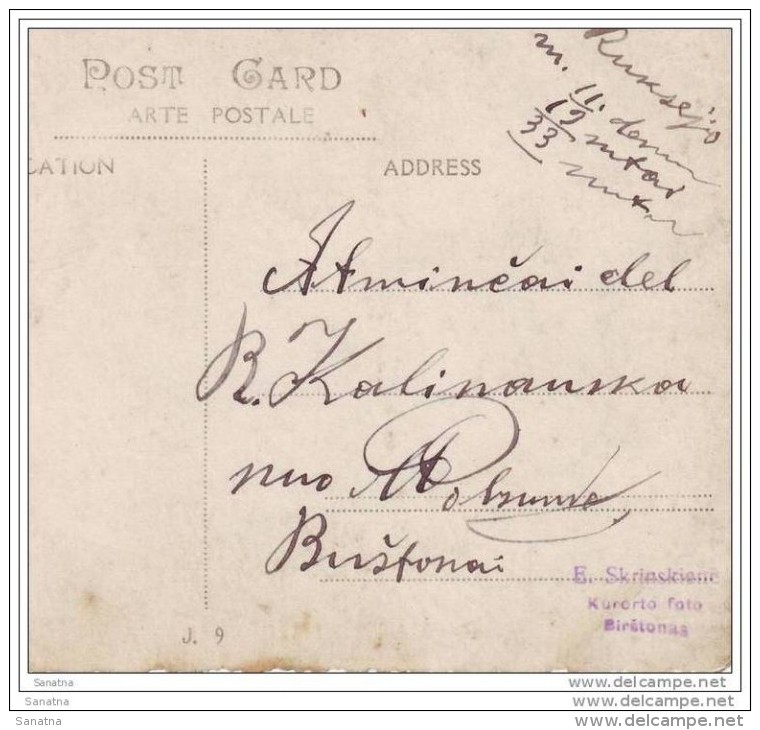 POST CARD
ARTE POSTALE
CATION
ADDRESS
Ruksejo
m. 11. dem
19
33
Atminčai del
R. Kalinauska
nuo
Birštonai
E. Skrinskienė
Kurorto foto
Birštonas
J. 9
Sanatna
www.delcampe.net
Sanatna
www.delcampe.net
Sanatna
www.delcampe.net